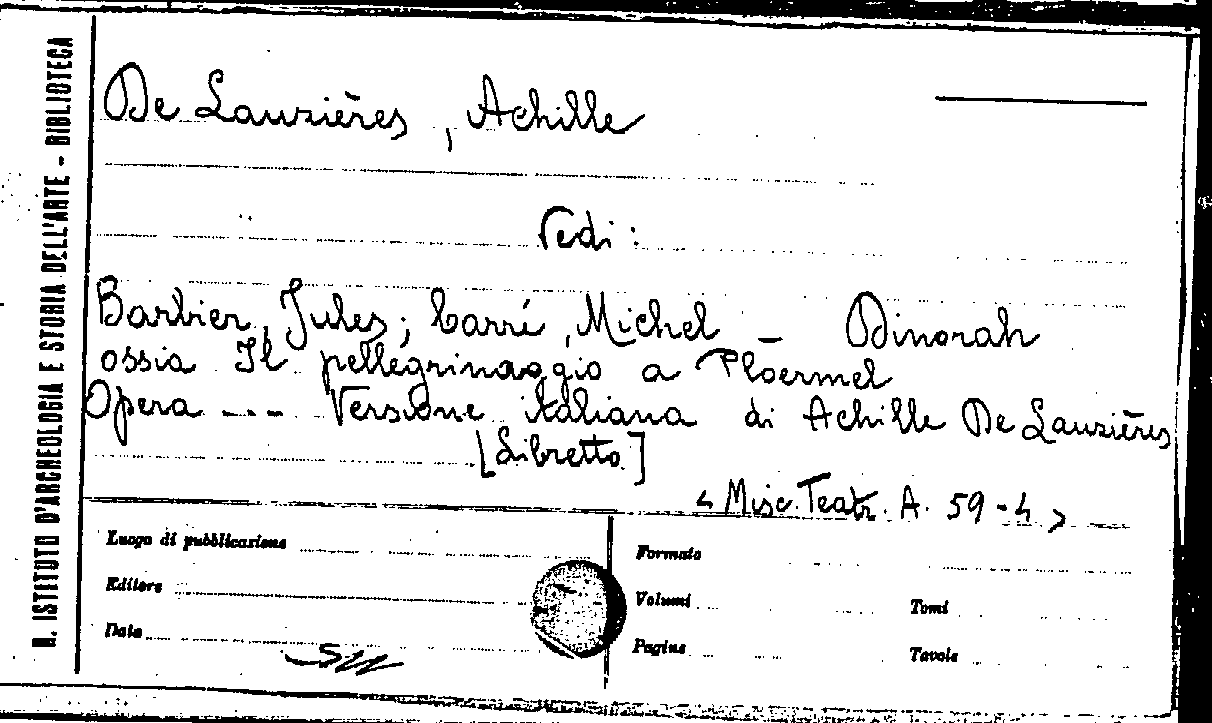 R. ISTITUTO D'ARCHEOLOGIA E STORIA DELL'ARTE - BIBLIOTECA
De Lauzières, Achille
Vedi:
Barbier, Jules; Carré, Michel – Dinorah
ossia Il pellegrinaggio a Ploermel
Opera --- Versione italiana di Achille De Lauzières
[Libretto]
< Misc. Teatr. A. 59-4 >
Luogo di pubblicazione
Editore
Data
Formato
Volumi
Tomi
Pagine
Tavole